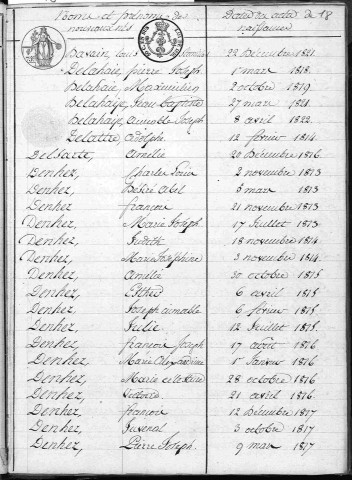 Noms et prénoms des
nouveaux nés
Dates des actes de 18
naissance
Bavain, Louis 22 Décembre 1821
Delahaie, pierre Joseph 1er mars 1818.
Delahaie, Maximilien 2 octobre 1819
Delahaye, Jean Baptiste 27 mars 1821.
Delahaye, aimable Joseph 8 avril 1822.
Delattre, adolph. 12 fevrier 1814.
Delsarte, Amélie 20 Décembre 1816.
Denhez, Charles Louis 2 novembre 1813
Denhez, Désiré abel 5 mars 1813
Denhez, françois 21 novembre 1813
Denhez, Marie Joseph. 17 Juillet 1813.
Denhez, Judith 18 novembre 1814.
Denhez, Marie Joséphine 3 novembre 1814
Denhez, Amélie 30 octobre 1815
Denhez, Esther 6 avril 1815.
Denhez, Joseph aimable 6 fevrier 1815.
Denhez, Julie 12 Juillet 1815.
Denhez, françois Joseph 17 août 1816
Denhez, Marie Alexandrine 1er Janvier 1816
Denhez, Marie 28 octobre 1816
Denhez, Victoire 21 avril 1816
Denhez, françois 12 Décembre 1817
Denhez, Juvenal 3 octobre 1817
Denhez, Pierre Joseph. 9 mars 1817